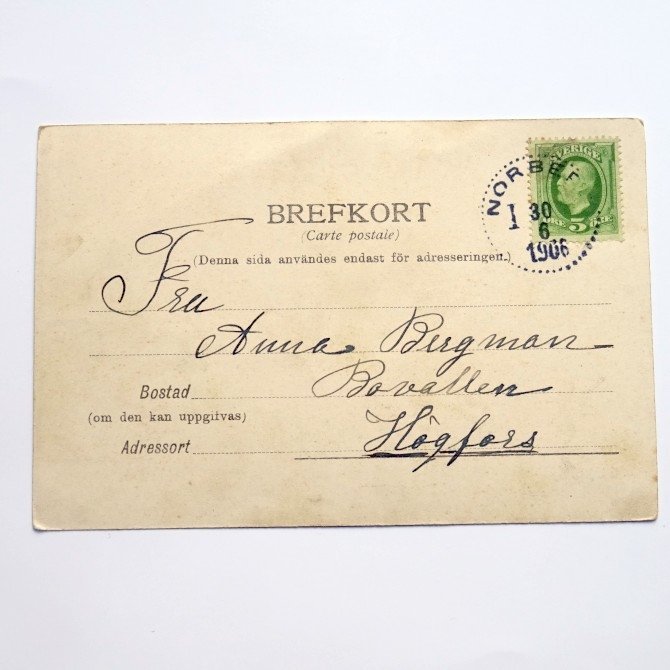 SVERIGE
ÖRE 5 ÖRE
NORBE
1
30
6
1906
BREFKORT
(Carte postale)
(Denna sida användes endast för adresseringen.)
Fru
Anna Bergman
Bostad
Bovallen
(om den kan uppgifvas)
Adressort
Högfors